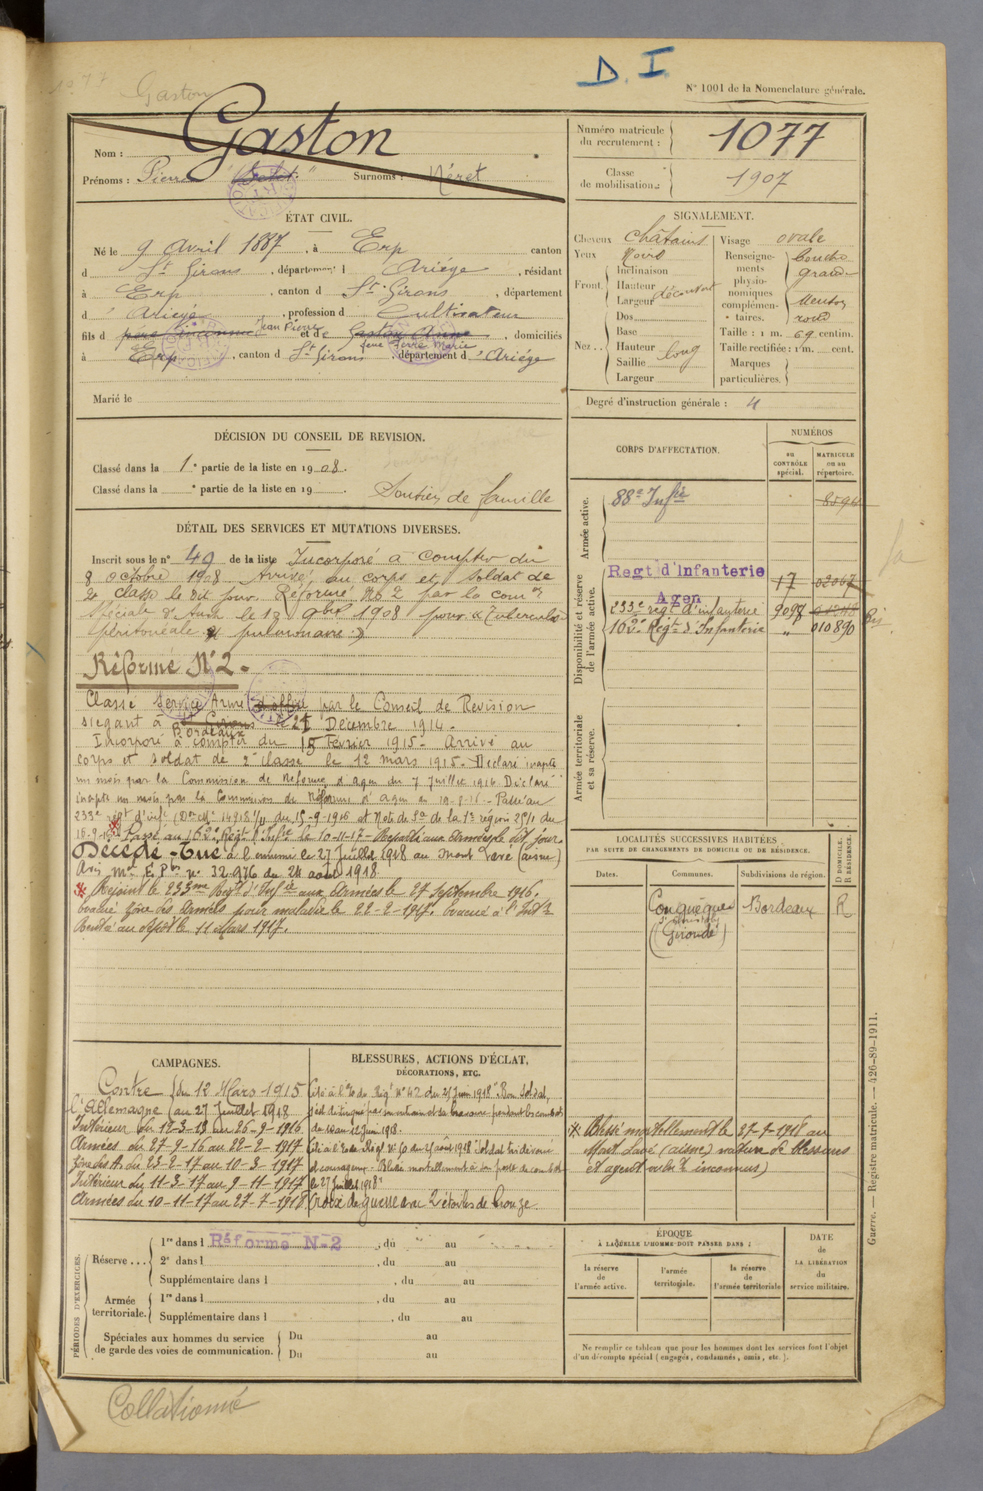 D. I.
N° 1001 de la Nomenclature générale.
Gaston
Nom : Gaston
Prénoms : Pierre Surnoms : Néret
Numéro matricule du recrutement : 1077
Classe de mobilisation : 1907
ÉTAT CIVIL.
Né le 9 Avril 1887, à Erp canton
d St Girons, département d Ariége, résidant
à Erp, canton d St Girons, département
d' Ariége, profession d Cultivateur
fils d père inconnu Jean Pierre et de Gaston Anne feue Marie, domiciliés
à Erp, canton d St Girons, département d' Ariége
Marié le
SIGNALEMENT.
Cheveux Châtains
Yeux
Front.
Inclinaison
Hauteur
Largeur découvert
Nez..
Dos
Base
Hauteur
Saillie long
Largeur
Visage ovale
Renseignements physionomiques complémentaires.
Bouche
grande
Menton
rond
Taille : 1 m. 69 centim.
Taille rectifiée : 1 m. cent.
Marques particulières.
Degré d'instruction générale : 4
DÉCISION DU CONSEIL DE REVISION.
Classé dans la 1e partie de la liste en 1908.
Classé dans la e partie de la liste en 19 .
Soutien de famille
DÉTAIL DES SERVICES ET MUTATIONS DIVERSES.
Inscrit sous le n° 49 de la liste Incorporé à compter du
8 octobre 1908 Arrivé au corps et soldat de
2e classe le dit jour. Réformé No 2 par la comon
spéciale d'Auch le 13 9bre 1908 pour « Tuberculose
péritonéale & pulmonaire »
Réformé N° 2 -
Classé Service Armé par le Conseil de Revision
siegant à St Girons Bordeaux le 21 Décembre 1914 -
Incorporé à compter du 15 Février 1915 - Arrivé au
corps et soldat de 2e classe le 12 mars 1915. Déclaré inapte
un mois par la Commission de Réforme d'Agen du 7 Juillet 1916 Déclaré
inapte un mois par la Commission de Réforme d'Agen - Passé au
233e regt d'infie du 15-9-1916
Passé au 162e Régt d'Infie le 10-11-17 - dit jour.
Décédé - Tué à l'ennemi le 27 Juillet 1918 au Mont Lavé (aisne)
Avis Mel E.P. n° 32.976 du 24 août 1918.
* Rejoint le 233me Regt d'Infie aux Armées le 27 Septembre 1916.
évacué Zône des Armées pour maladie le 22-2-1917. évacué à l'Intr
Rentré au dépôt le 11 Mars 1917.
CORPS D'AFFECTATION.
NUMÉROS
au CONTRÔLE spécial.
MATRICULE ou au répertoire.
Armée active.
88e Infie
Disponibilité et réserve de l'armée active.
Regt d'Infanterie 17
Agen
233e regt d'infanterie 9097
162e Régt d'Infanterie " 010890
Armée territoriale et sa réserve.
LOCALITÉS SUCCESSIVES HABITÉES
PAR SUITE DE CHANGEMENTS DE DOMICILE OU DE RÉSIDENCE.
Dates.
Communes.
Subdivisions de région.
D DOMICILE, R RÉSIDENCE.
(Gironde)
Bordeaux
R
CAMPAGNES.
Contre du 12 Mars 1915
l'Allemagne au 27 Juillet 1918
Intérieur du 12-3-15 au 26-9-1916
Armées du 27-9-16 au 22-2-1917
Zône des A. du 23-2-17 au 10-3-1917
Intérieur du 11-3-17 au 9-11-1917
Armées du 10-11-17 au 27-7-1918
BLESSURES, ACTIONS D'ÉCLAT,
DÉCORATIONS, ETC.
Cité à l'o/ du Régt N° 42 du 25 Juin 1918 "Bon Soldat,
s'est distingué par son entrain et sa bravoure pendant les combats
du 10 au 12 Juin 1918.
Cité à l'ordre du Régt du 21 août 1918 "Soldat très dévoué
et courageux - Blessé mortellement à son poste de combat
le 27 Juillet 1918"
Croix de guerre avec 2 étoiles de bronze.
* Blessé mortellement le 27-7-1918 au
Mont Lavé (aisne) nature de blessures
et agent vulnt inconnus)
PÉRIODES D'EXERCICES.
Réserve...
1re dans l Réformé N-2, du au
2e dans l , du au
Supplémentaire dans l , du au
Armée territoriale.
1re dans l , du au
Supplémentaire dans l , du au
Spéciales aux hommes du service de garde des voies de communication.
Du au
Du au
ÉPOQUE
À LAQUELLE L'HOMME DOIT PASSER DANS :
la réserve de l'armée active.
l'armée territoriale.
la réserve de l'armée territoriale.
DATE de LA LIBÉRATION du service militaire.
Ne remplir ce tableau que pour les hommes dont les services font l'objet
d'un décompte spécial (engagés, condamnés, omis, etc.).
Guerre. — Registre matricule. — 426-89-1911.
Collationné